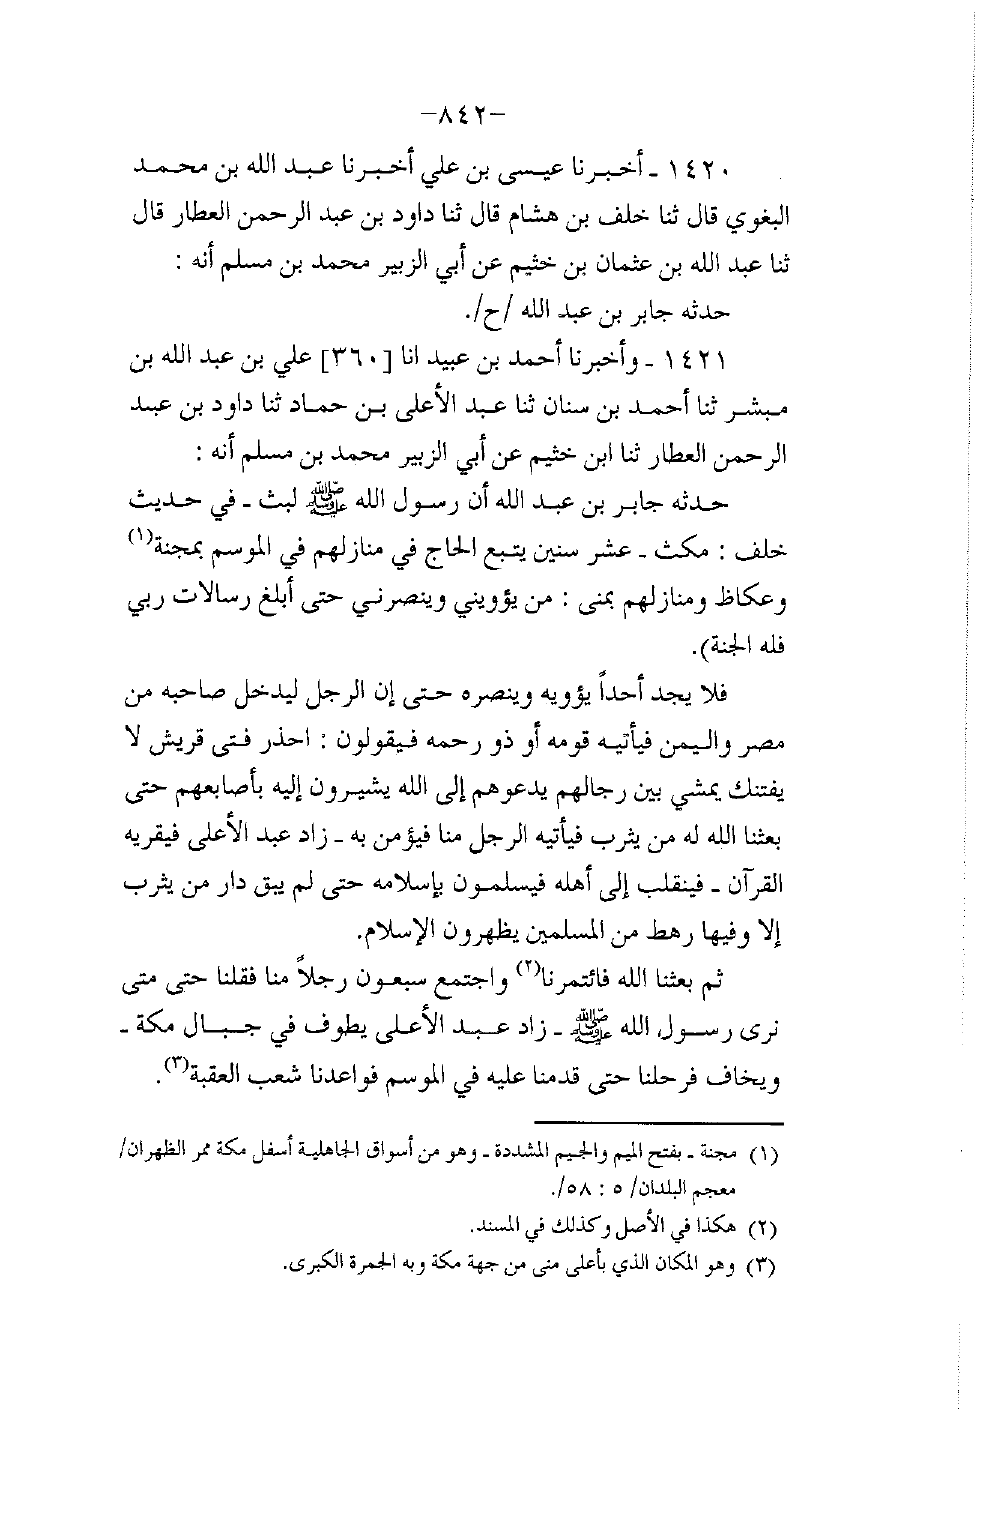 -٨٤٢-
١٤٢٠ ـ أخبرنا عيسى بن علي أخبرنا عبد الله بن محمد
البغوي قال ثنا خلف بن هشام قال ثنا داود بن عبد الرحمن العطار قال
ثنا عبد الله بن عثمان بن خثيم عن أبي الزبير محمد بن مسلم أنه :
حدثه جابر بن عبد الله /ح/.
١٤٢١ ـ وأخبرنا أحمد بن عبيد انا [٣٦٠] علي بن عبد الله بن
مبشر ثنا أحمد بن سنان ثنا عبد الأعلى بن حماد ثنا داود بن عبد
الرحمن العطار ثنا ابن خثيم عن أبي الزبير محمد بن مسلم أنه :
حدثه جابر بن عبد الله أن رسول الله ﷺ لبث ـ في حديث
خلف : مكث ـ عشر سنين يتبع الحاج في منازلهم في الموسم بمجنة(١)
وعكاظ ومنازلهم بمنى : من يؤويني وينصرني حتى أبلغ رسالات ربي
فله الجنة).
فلا يجد أحداً يؤويه وينصره حتى إن الرجل ليدخل صاحبه من
مصر واليمن فيأتيه قومه أو ذو رحمه فيقولون : احذر فتى قريش لا
يفتنك يمشي بين رجالهم يدعوهم إلى الله يشيرون إليه بأصابعهم حتى
بعثنا الله له من يثرب فيأتيه الرجل منا فيؤمن به ـ زاد عبد الأعلى فيقريه
القرآن ـ فينقلب إلى أهله فيسلمون بإسلامه حتى لم يبق دار من يثرب
إلا وفيها رهط من المسلمين يظهرون الإسلام.
ثم بعثنا الله فائتمرنا(٢) واجتمع سبعون رجلاً منا فقلنا حتى متى
نرى رسول الله ﷺ ـ زاد عبد الأعلى يطوف في جبال مكة ـ
ويخاف فرحلنا حتى قدمنا عليه في الموسم فواعدنا شعب العقبة(٣).
(١) مجنة ـ بفتح الميم والجيم المشددة ـ وهو من أسواق الجاهلية أسفل مكة مر الظهران/
معجم البلدان/ ٥ : ٥٨/.
(٢) هكذا في الأصل وكذلك في المسند.
(٣) وهو المكان الذي بأعلى منى من جهة مكة وبه الجمرة الكبرى.